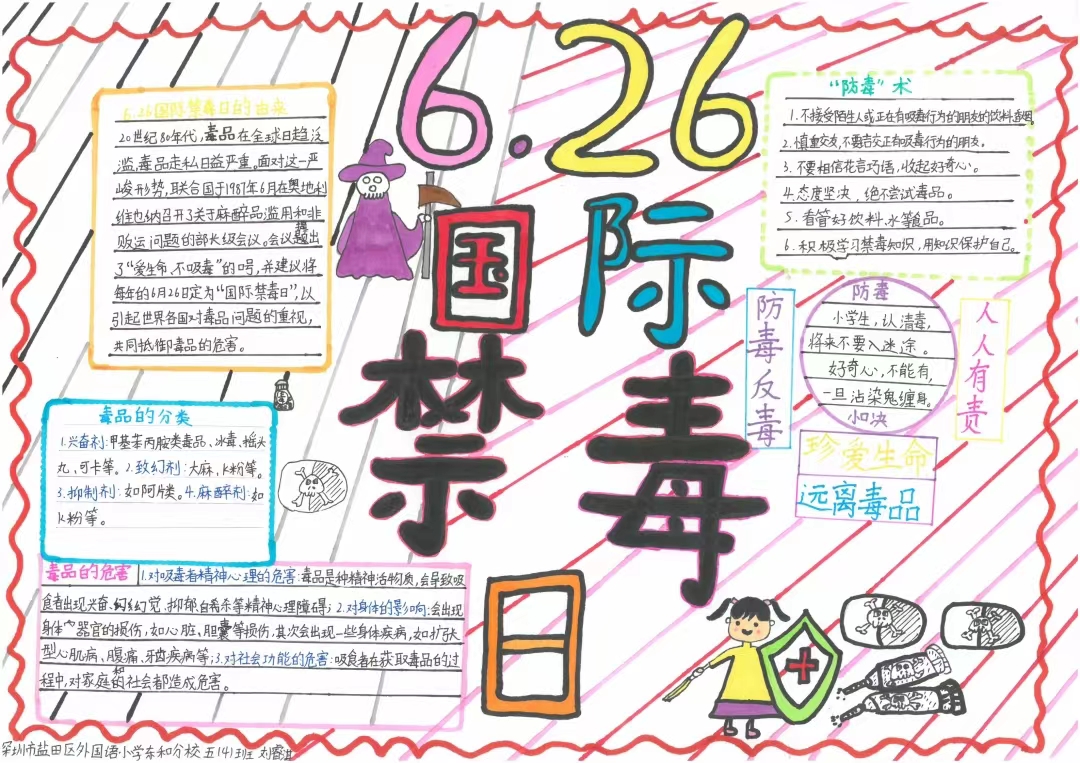 6.26
国际
禁毒
日
6.26国际禁毒日的由来
20世纪80年代,毒品在全球日趋泛
滥,毒品走私日益严重。面对这一严
峻形势,联合国于1987年6月在奥地利
维也纳召开了关于麻醉品滥用和非
贩运问题的部长级会议。会议提出
了“爱生命,不吸毒”的口号,并建议将
每年的6月26日定为“国际禁毒日”,以
引起世界各国对毒品问题的重视,
共同抵御毒品的危害。
毒品的分类
1.兴奋剂:甲基苯丙胺类毒品、冰毒、摇头
丸、可卡等。2.致幻剂:大麻,K粉等。
3.抑制剂:如阿片类。4.麻醉剂:如
K粉等。
毒品的危害
1.对吸毒者精神心理的危害:毒品是种精神活物质,会导致吸
食者出现兴奋、幻觉、抑郁自杀等精神心理障碍;2.对身体的影响:会出现
身体器官的损伤,如心脏、胆囊等损伤,其次会出现一些身体疾病,如扩张
型心肌病、腹痛、牙齿疾病等;3.对社会功能的危害:吸食者在获取毒品的过
程中,对家庭和社会都造成危害。
“防毒”术
1.不接受陌生人或正在有吸毒行为的朋友的饮料
2.慎重交友,不要结交正有吸毒行为的朋友。
3.不要相信花言巧语,收起好奇心。
4.态度坚决,绝不尝试毒品。
5.看管好饮料、水等食品。
6.积极学习禁毒知识,用知识保护自己。
防毒反毒
防毒
小学生,认清毒,
将来不要入迷途。
好奇心,不能有,
一旦沾染鬼缠身。
口决
人人有责
珍爱生命
远离毒品
深圳市盐田区外国语小学东和分校 五(4)班 刘睿淇